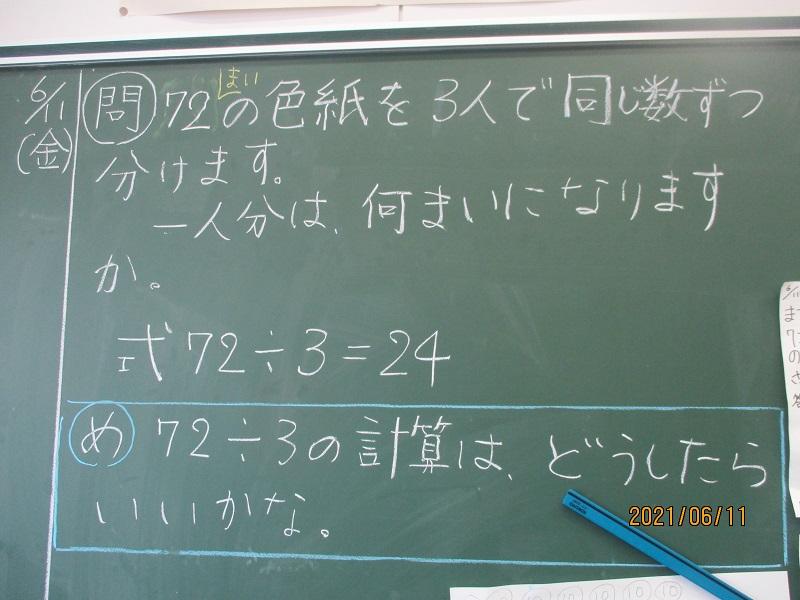 6/11
(金)
問 72まいの色紙を3人で同じ数ずつ
分けます。
一人分は、何まいになります
か。
式 72÷3=24
め 72÷3の計算は、どうしたら
いいかな。
2021/06/11